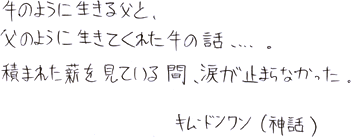 牛のように生きる父と、
父のように生きてくれた牛の話、、、、。
積まれた薪を見ている間、涙が止まらなかった。
キム・ドンワン(神話)